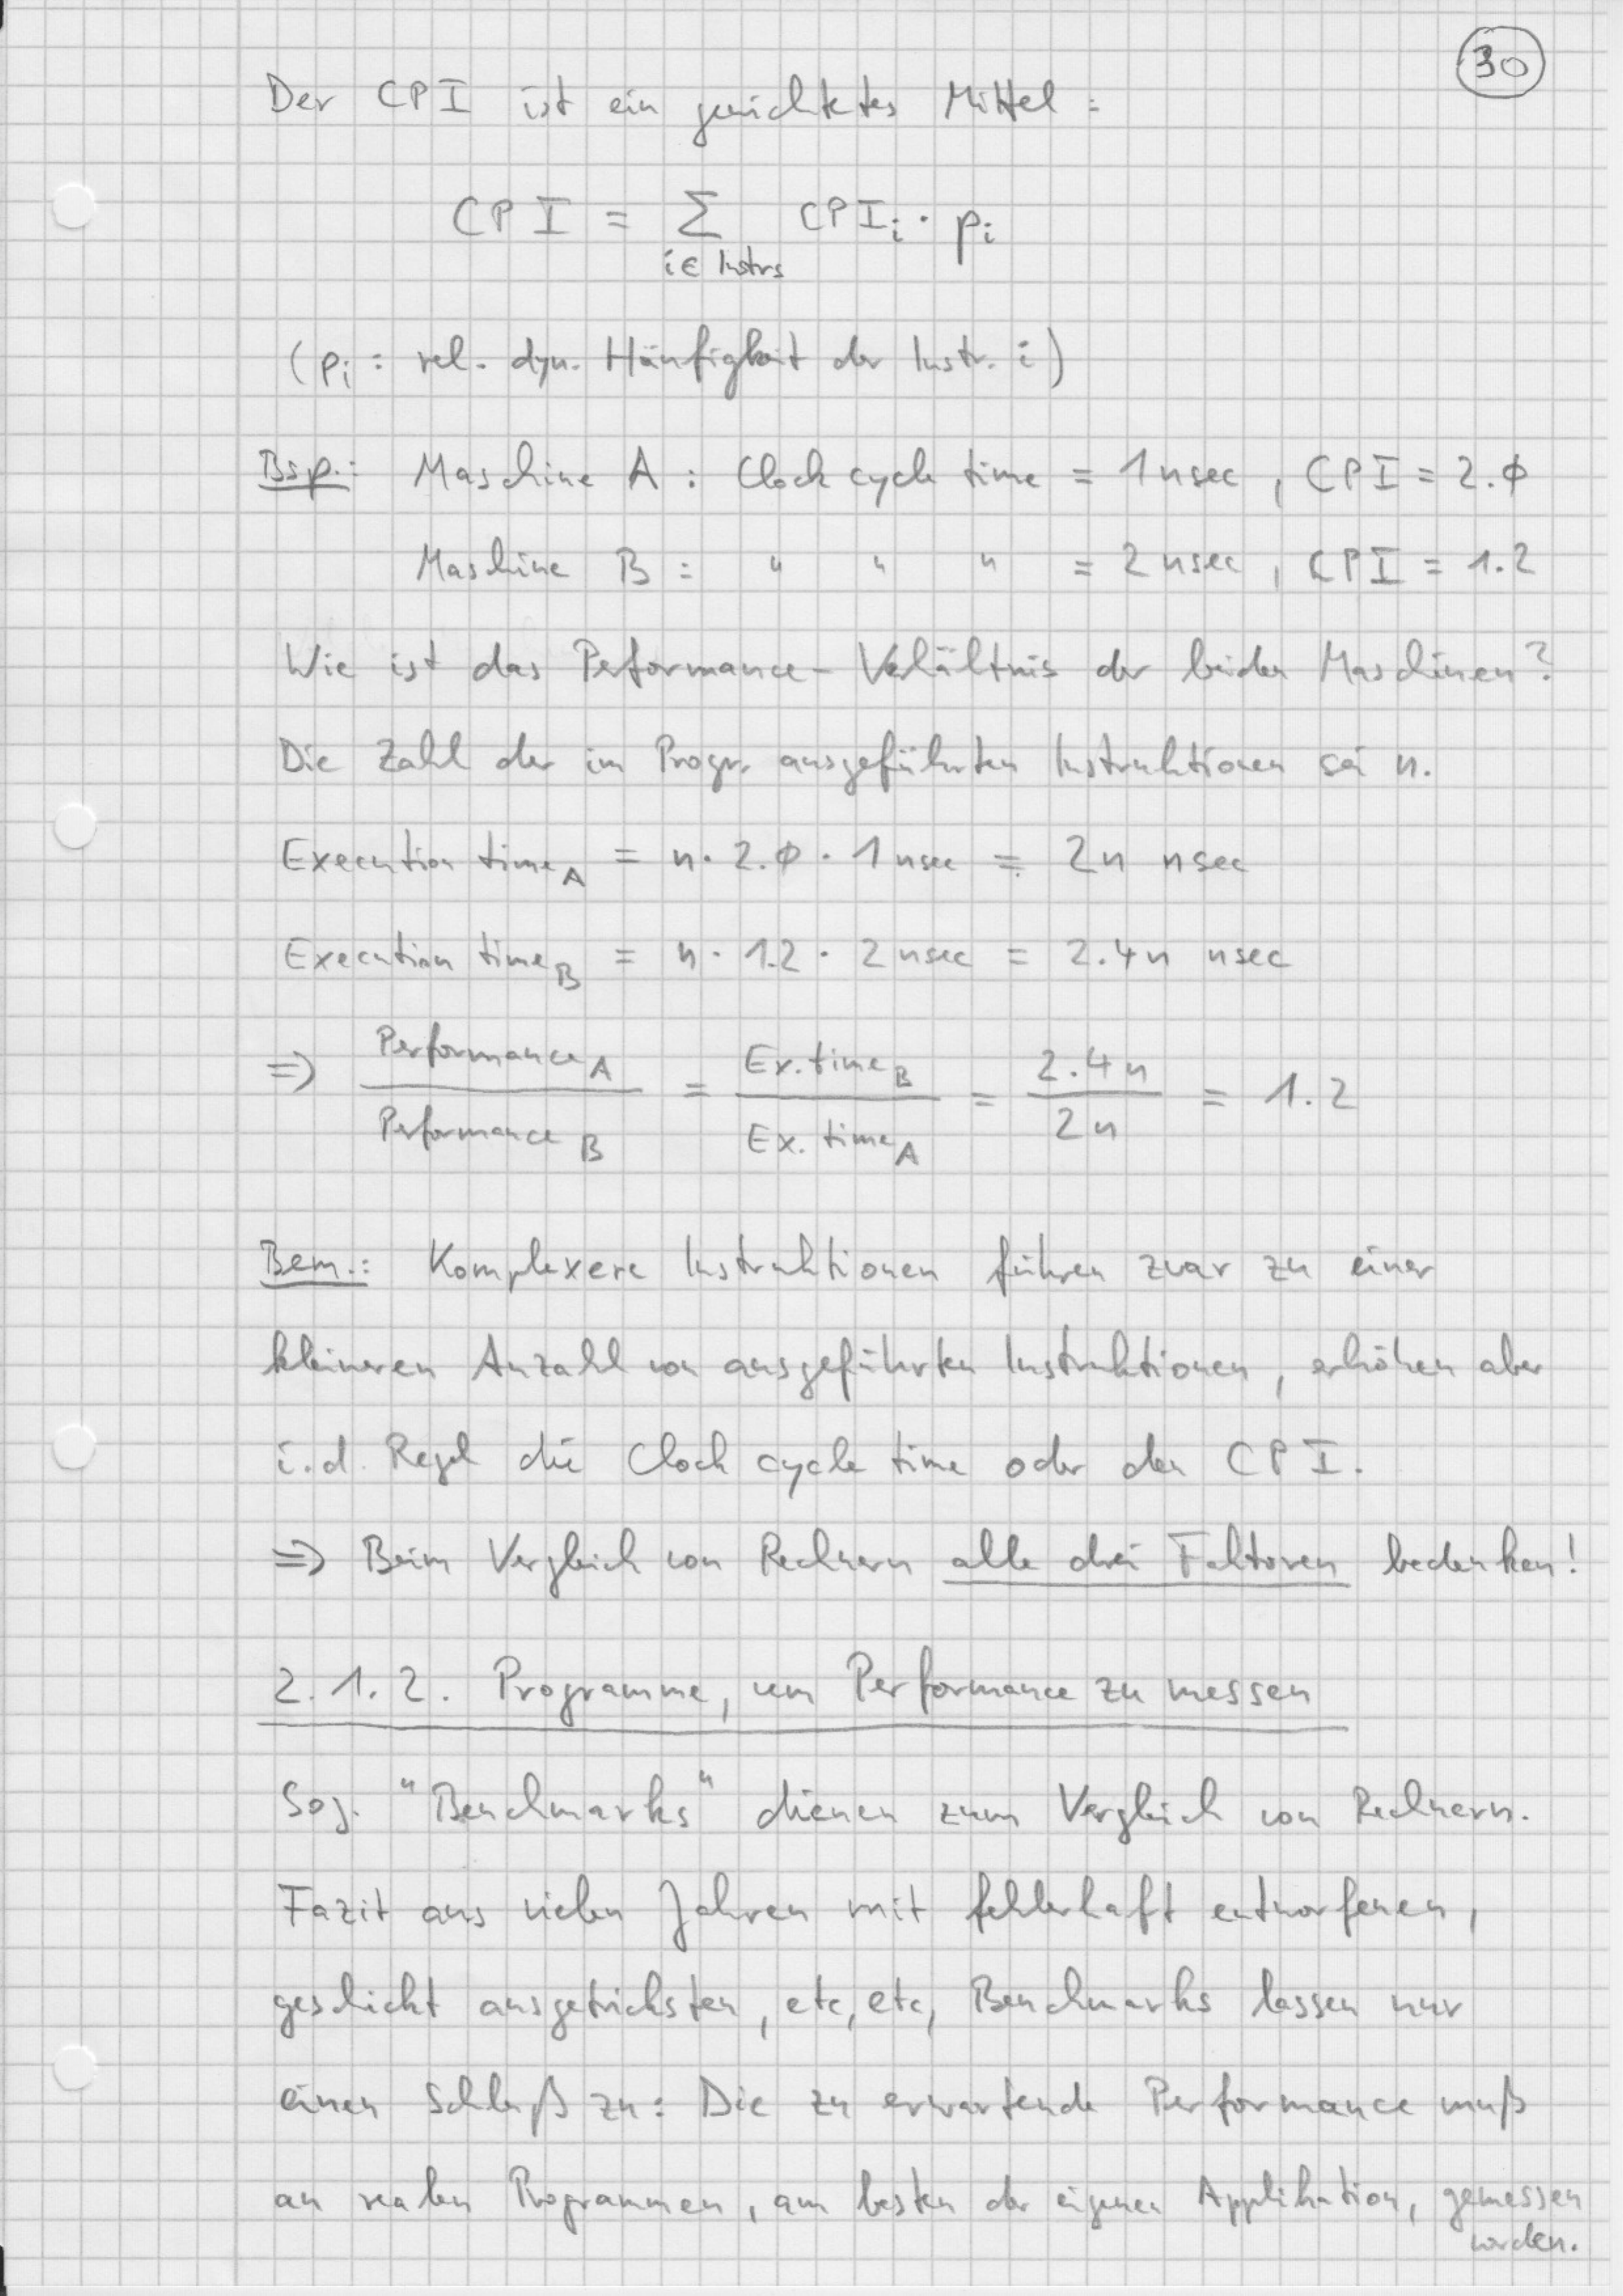 30
Der CPI ist ein gewichtetes Mittel:
CPI = Σ CPIi · pi
i ∈ Instrs
(pi : rel. dyn. Häufigkeit der Instr. i)
Bsp.: Maschine A : Clock cycle time = 1 nsec , CPI = 2.0
Maschine B : " " " = 2 nsec , CPI = 1.2
Wie ist das Performance-Verhältnis der beiden Maschinen?
Die Zahl der im Progr. ausgeführten Instruktionen sei n.
Execution timeA = n · 2.0 · 1 nsec = 2n nsec
Execution timeB = n · 1.2 · 2 nsec = 2.4n nsec
⇒ PerformanceA / PerformanceB = Ex. timeB / Ex. timeA = 2.4n / 2n = 1.2
Bem.: Komplexere Instruktionen führen zwar zu einer
kleineren Anzahl von ausgeführten Instruktionen, erhöhen aber
i.d. Regel die Clock cycle time oder den CPI.
⇒ Beim Vergleich von Rechnern alle drei Faktoren bedenken!
2.1.2. Programme, um Performance zu messen
Sog. "Benchmarks" dienen zum Vergleich von Rechnern.
Fazit aus vielen Jahren mit fehlerhaft entworfenen,
geschickt ausgetricksten, etc, etc, Benchmarks lassen nur
einen Schluß zu: Die zu erwartende Performance muß
an realen Programmen, am besten der eigenen Applikation, gemessen
werden.